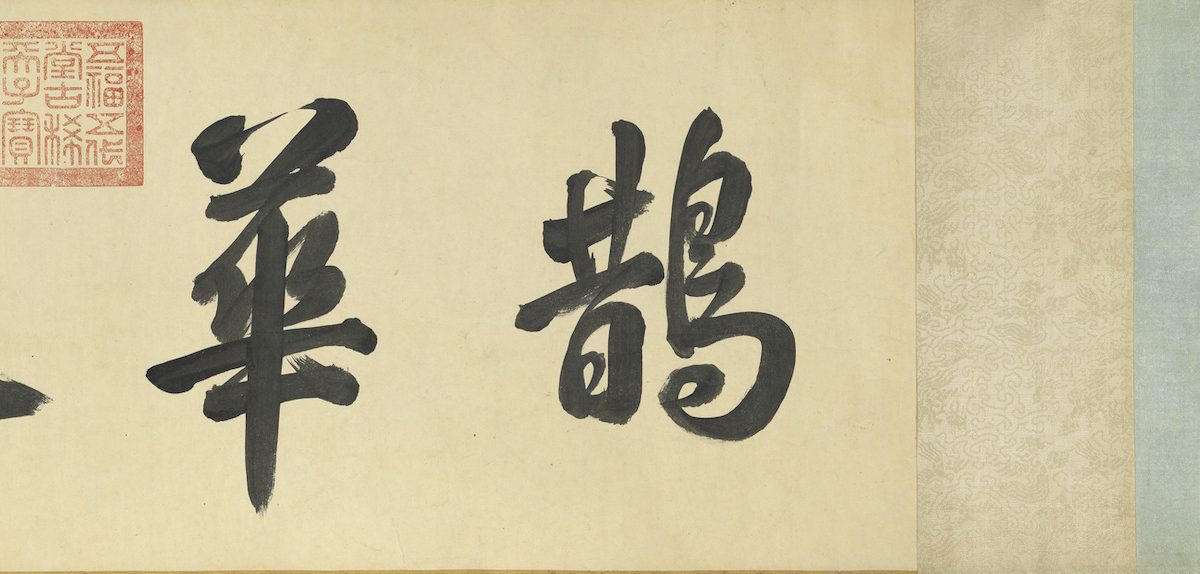 鵲華
五福五代
堂古稀
天子寶